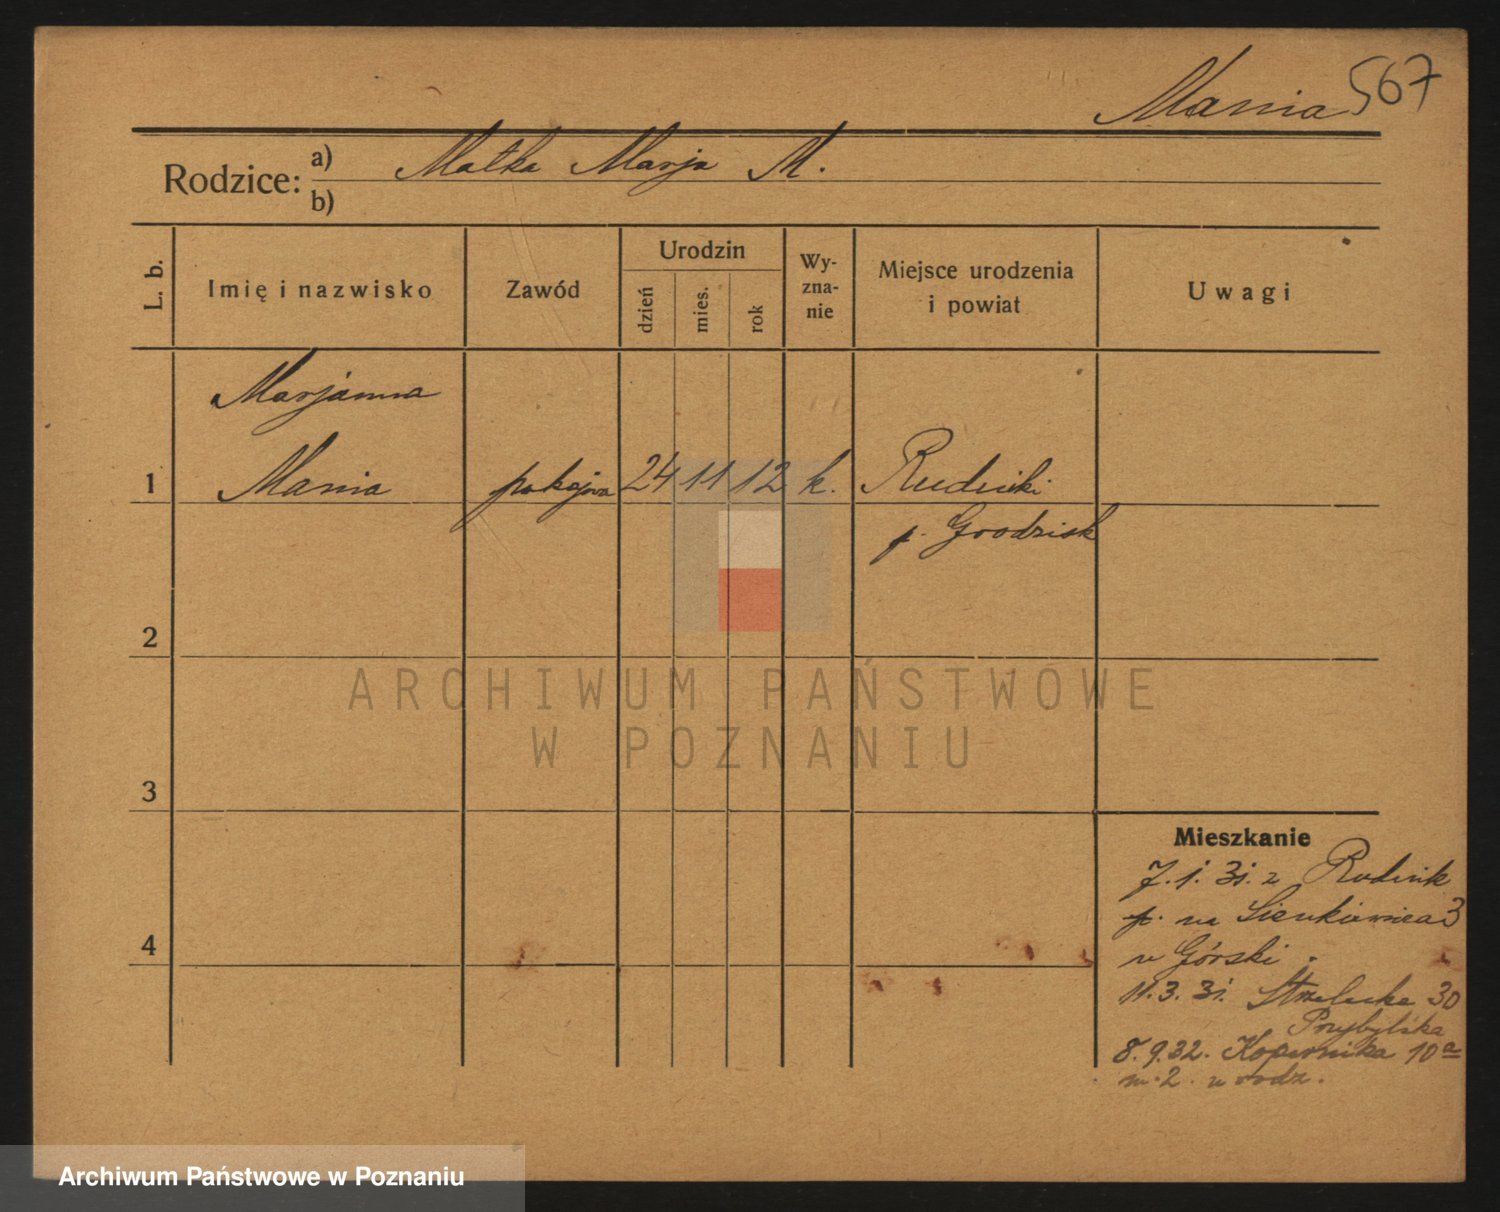 Mania 567
Rodzice: a) Matka Marja M.
b)
L. b.
Imię i nazwisko
Zawód
Urodzin
dzień
mies.
rok
Wy-
zna-
nie
Miejsce urodzenia
i powiat
Uwagi
Marjanna
1 Mania pokojowa 24 11 12 k. Rudniki
p. Grodzisk
2
ARCHIWUM PAŃSTWOWE
W POZNANIU
3
Mieszkanie
7.1.31. z Rudnik
p. na Sienkiewicza 3
u Górski.
4
11.3.31. Strzelecka 30
Przybylska
8.9.32. Kopernika 10a
m. 2. u rodz.
Archiwum Państwowe w Poznaniu